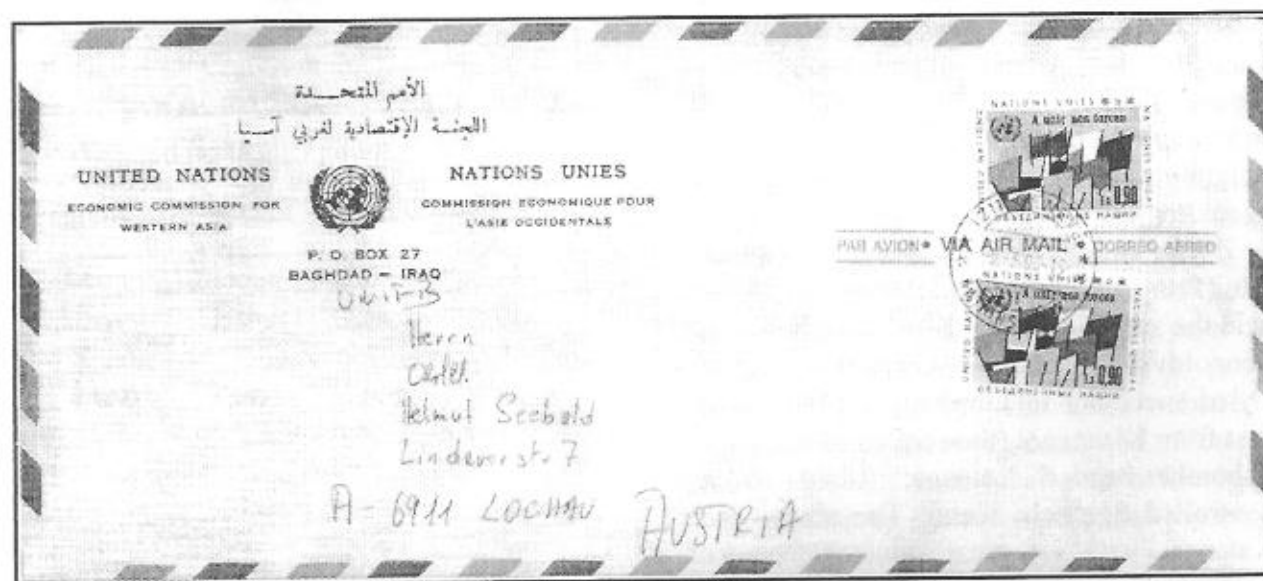 الأمم المتحـــدة
اللجنــة الإقتصادية لغربي آسـيا
UNITED NATIONS
ECONOMIC COMMISSION FOR
WESTERN ASIA
NATIONS UNIES
COMMISSION ECONOMIQUE POUR
L'ASIE OCCIDENTALE
P. O. BOX 27
BAGHDAD – IRAQ
Herrn
Helmut Seebald
Lindauerstr 7
A - 6911 LOCHAU AUSTRIA
NATIONS UNIES
0,90
PAR AVION • VIA AIR MAIL • CORREO AEREO
NATIONS UNIES
0,90